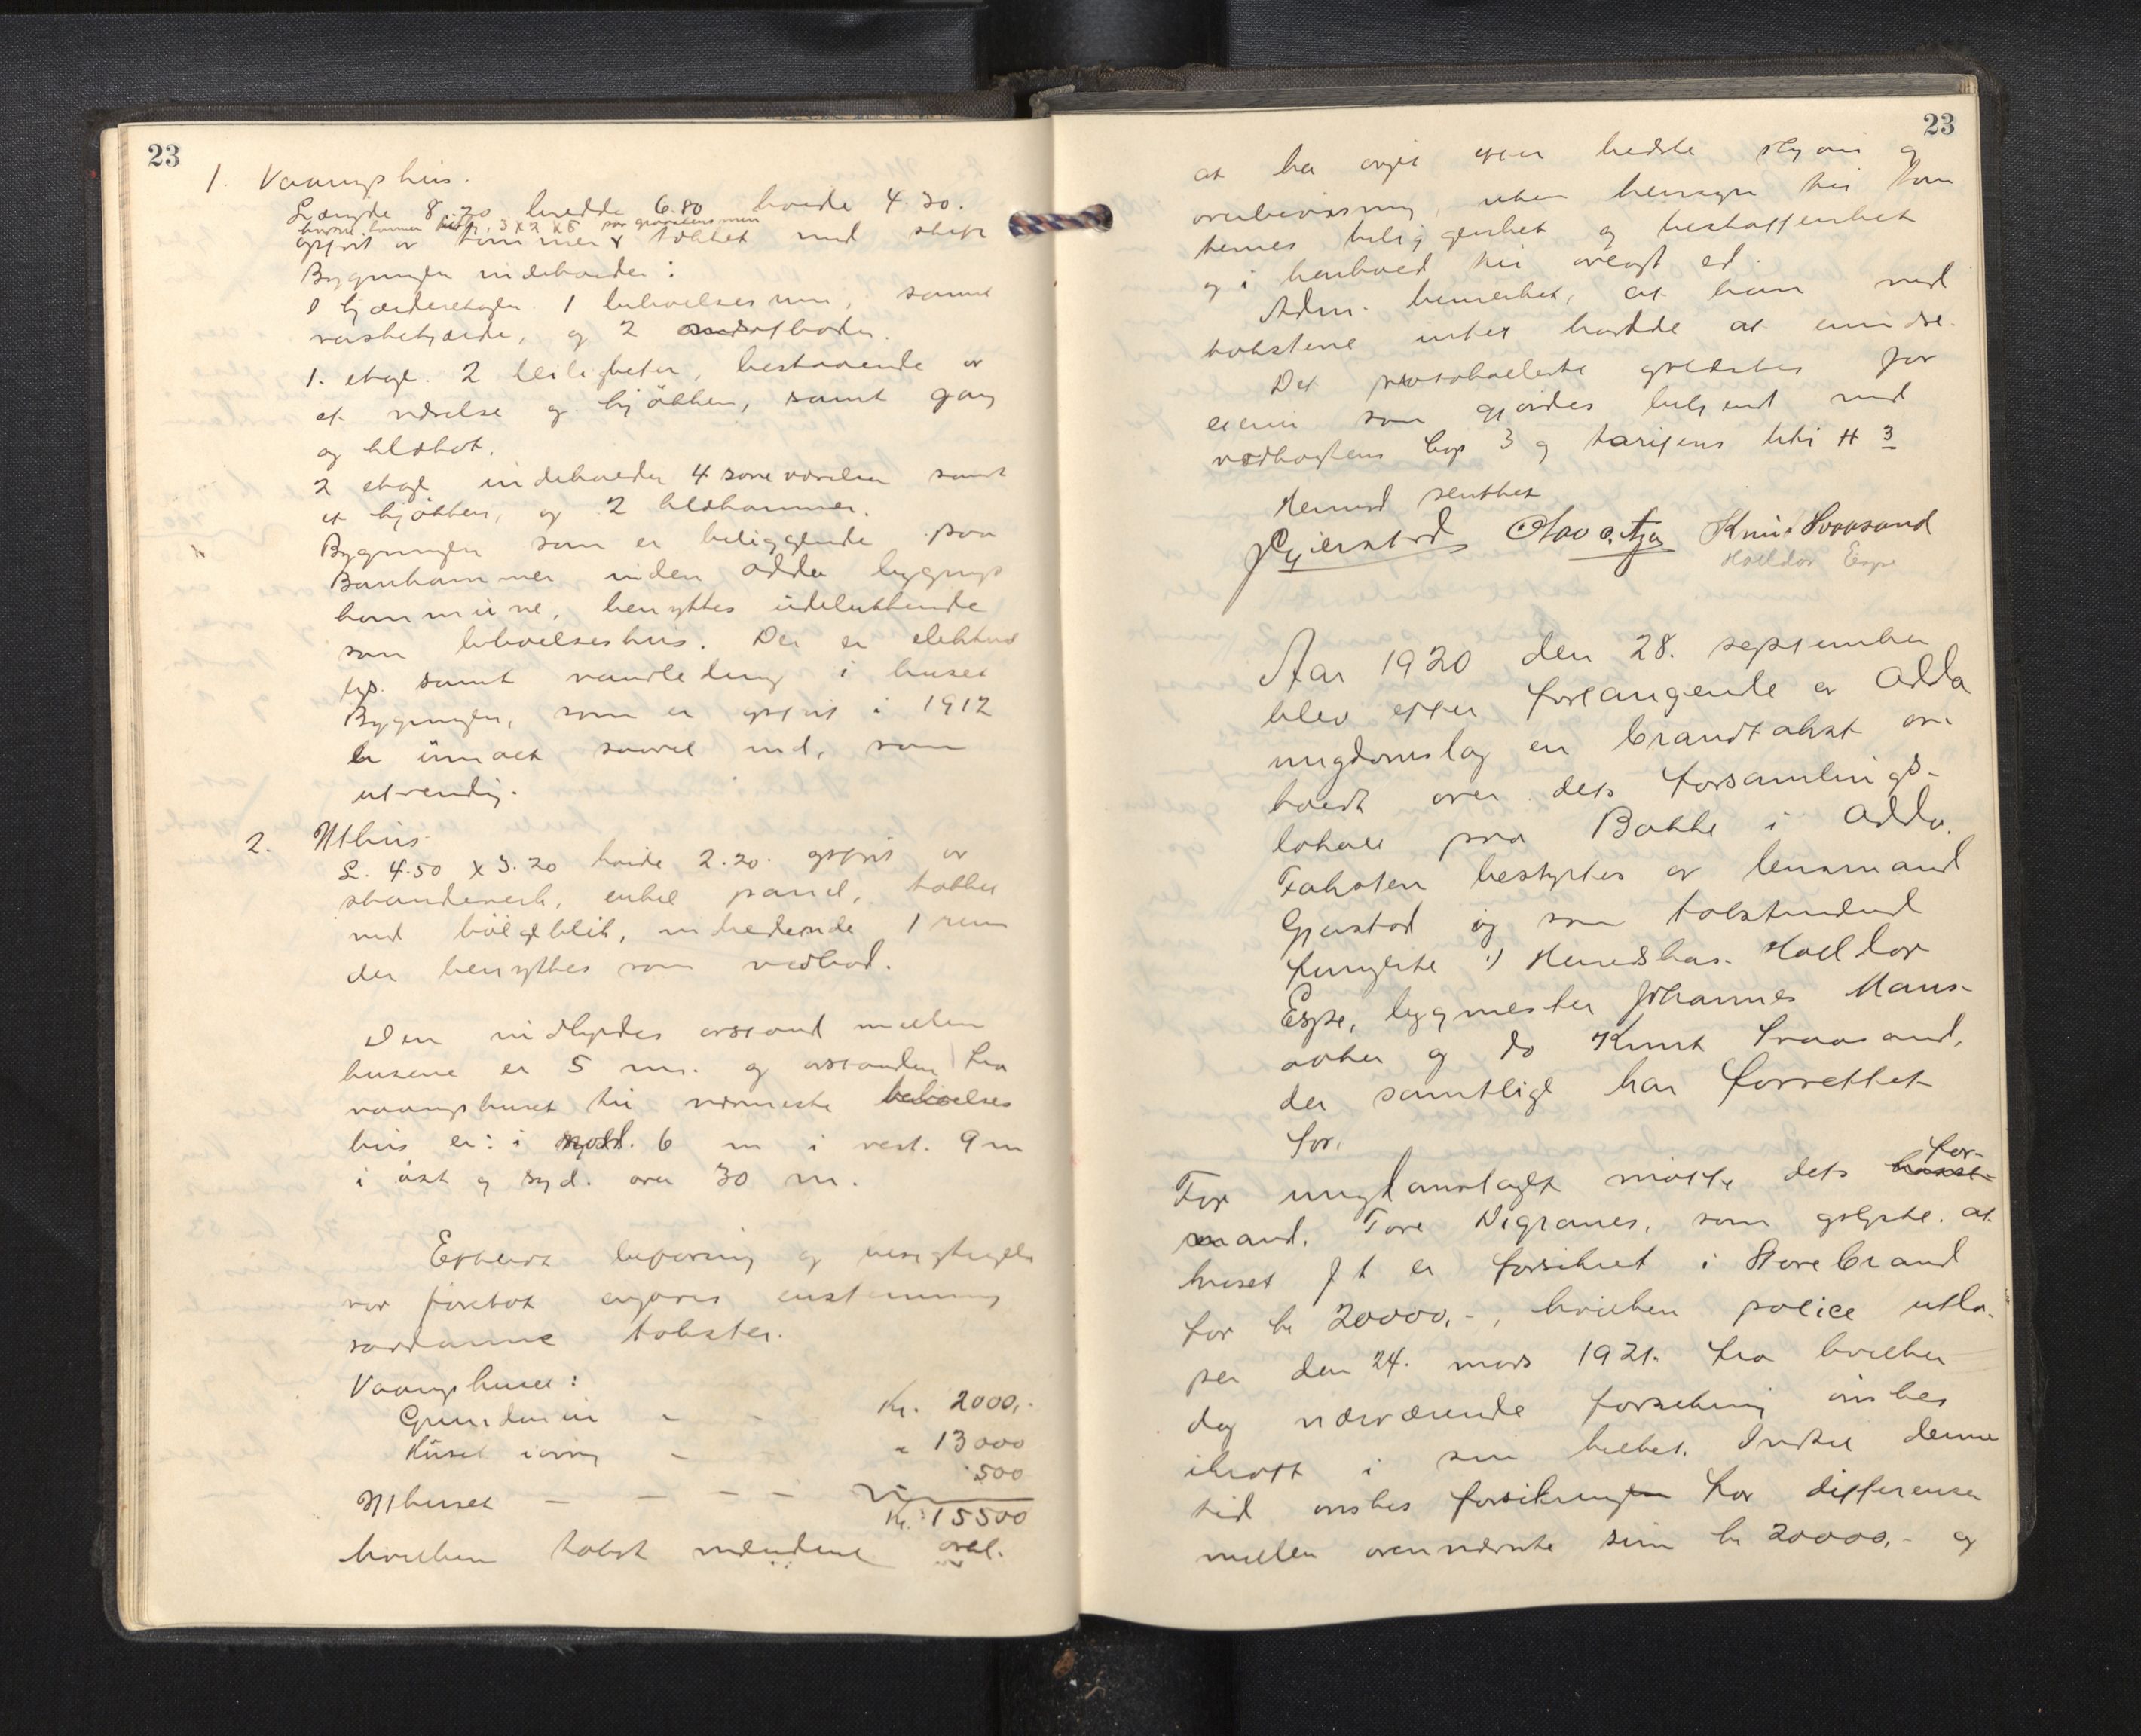 23
1. Vaaningshus.
Længde 8.70 bredde 6.80 høide 4.30.
opført av tømmer tækket med skifer
Bygningen indeholder:
I kjælderetagen 1 beboelsesrum, samt
vaskekjælder, og 2 matboder.
1. etage. 2 leiligheter, bestaaende av
et værelse og kjøkken, samt gang
og klædskot.
2 etage indeholder 4 soveværelser samt
et kjøkken, og 2 klædkammer.
Bygningen som er beliggende paa
inden Odda bygnings
kommune, benyttes udelukkende
som beboelseshus. Der er elektrisk
lys. samt vandledning i huset
Bygningen, som er opført i 1912
er ümalt saavel ind, som
utvendig.
2. Uthus
L. 4.50 x 3.20 høide 2.20. opført av
standerverk, enkel panel, tækket
med bølgeblik, indeholdende 1 rum
der benyttes som vedbod.
Den indbyrdes avstand mellem
husene er 5 m. og avstanden fra
vaaningshuset til nærmeste beboelses
hus er: i nord. 6 m i vest. 9 m
i øst og syd. over 30 m.
Efterat befaring og besigtigelse
var foretat avgaves enstemmig
saadanne takster.
Vaaningshuset:
Grundmur - - Kr. 2000,-
Huset iøvrig - " 13000
Uthuset - - - - 500
Kr. 15500
hvilken takst mændene avl.
23
at ha avgit efter bedste skjøn og
overbevisning, uten hensyn til tom
ternes beliggenhet og beskaffenhet
og i henhold til avlagt ed.
Adm. bemerket, at han mod
takstene intet hadde at erindre.
Det protokollerte oplæstes for
eieren som gjordes bekjendt med
vedtægtens Cap 3 og tarifens litr H 3
Hermed sluttet
Gjerstad Olav O. Aga Knut Svaasand
Halldor Espe
Aar 1920 den 28. september
blev efter forlangende av Odda
ungdomslag en brandtakst av
holdt over dets forsamlings-
lokale paa Bakke i Odda.
Taksten bestyrtes av lensmand
Gjerstad og som takstmænd
fungerte 1) Herredskas. Halldor
Espe, bygmester Johannes Mans-
aaker og do Knut Svaasand,
der samtlige har forrettet
før.
For ungdomslaget møtte dets for-
mand. Tore Digranes, som oplyste. at
huset f t er forsikret i Storebrand
for kr 20000,-, hvilken police utlø-
per den 24. mars 1921. fra hvilken
dag nærværende forsikring ønskes
ikraft i sin helhet. Indtil denne
tid ønskes forsikring for differensen
mellem ovennævnte sum kr 20000,- og